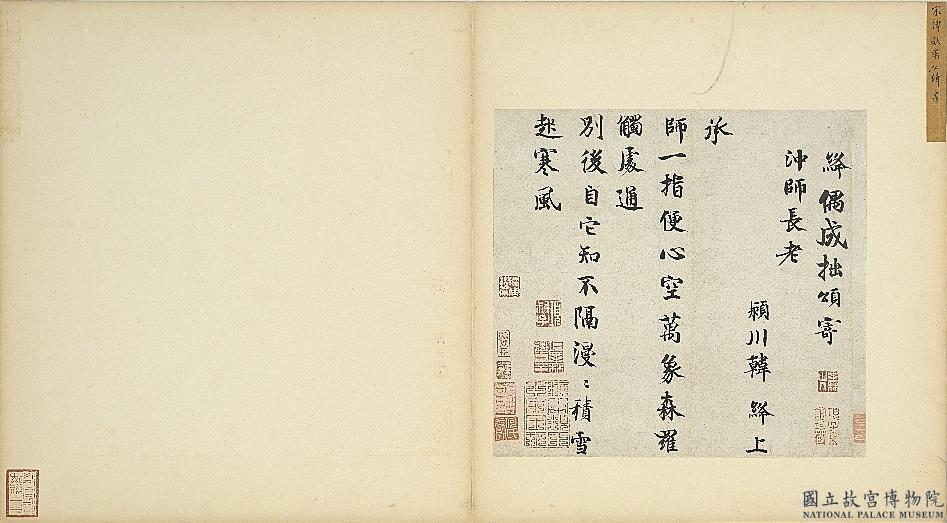 絳偶成拙頌寄
沖師長老
頴川韓絳上
承
師一指便心空萬象森羅
觸處通
別後自它知不隔漫〻積雪
起寒風
國立故宮博物院
NATIONAL PALACE MUSEUM